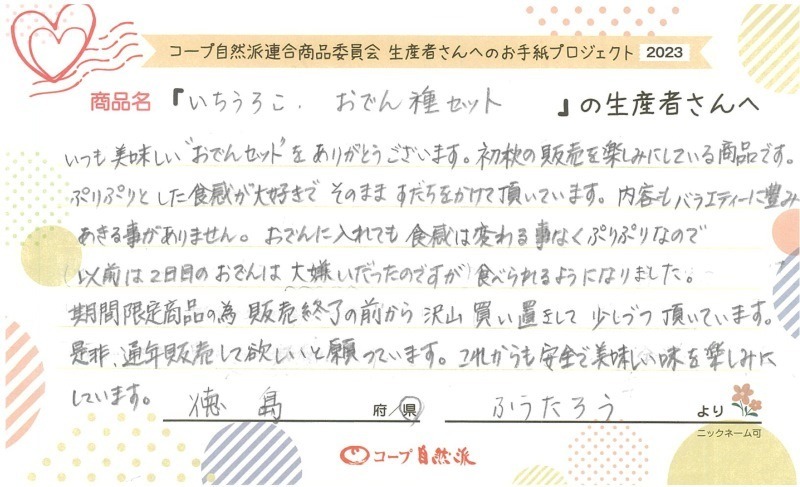 コープ自然派連合商品委員会 生産者さんへのお手紙プロジェクト 2023
商品名 『いちうろこ. おでん種セット 』の生産者さんへ
いつも美味しい"おでんセット"をありがとうございます。初秋の販売を楽しみにしている商品です。
ぷりぷりとした食感が大好きで そのまま すだちをかけて頂いています。内容もバラエティーに豊み
あきる事がありません。おでんに入れても 食感は変わる事なくぷりぷりなので
(以前は2日目のおでんは 大嫌いだったのですが)食べられるようになりました。
期間限定商品の為 販売終了の前から 沢山 買い置きして 少しづつ 頂いています。
是非、通年販売して欲しいと願っています。これからも安全で美味しい味を楽しみに
しています。
徳島 府/県 ふうたろう より
ニックネーム可
コープ自然派